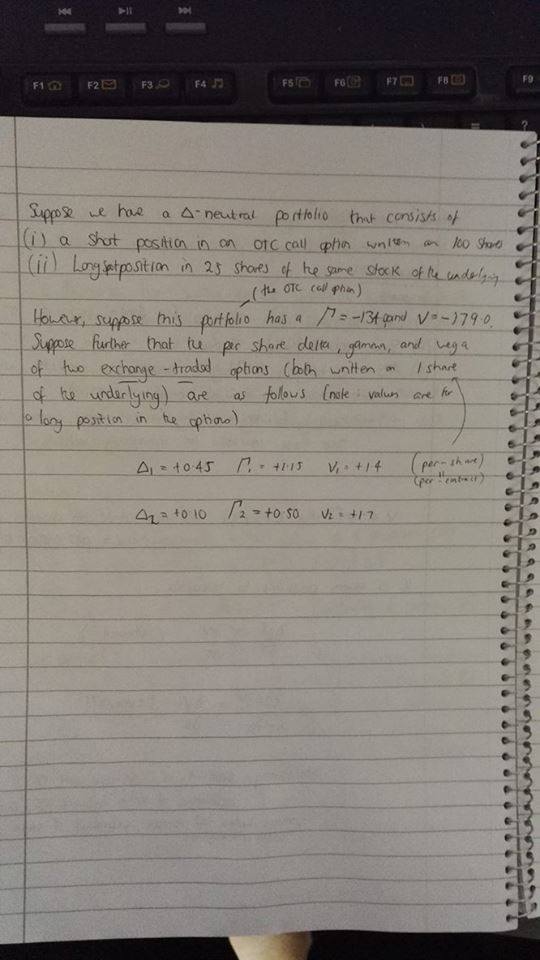 F1 F2 F3 F4 F5 F6 F7 F8 F9
?
Suppose we have a Δ-neutral portfolio that consists of
(i) a short position in an OTC call option written on 100 shares
(ii) Long position in 25 shares of the same stock of the underlying
(the OTC call option)
However, suppose this portfolio has a Γ = -134 and V = -179.0.
Suppose further that the per share delta, gamma, and vega
of two exchange-traded options (both written on 1 share
of the underlying) are as follows (note: values are for
a long position in the options)
Δ1 = +0.45 Γ1 = +1.15 V1 = +1.4 (per-share)
(per contract)
Δ2 = +0.10 Γ2 = +0.50 V2 = +1.7